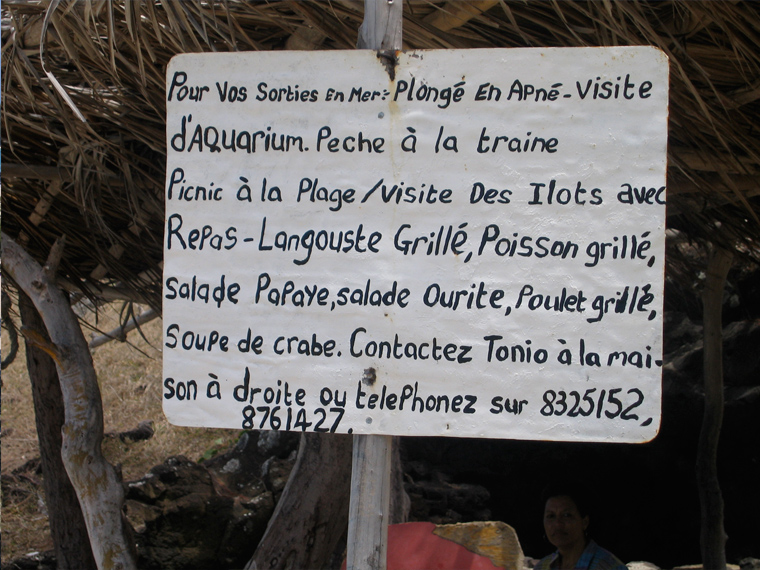 Pour Vos Sorties En Mer: Plongé En Apné-Visite
d'AQuarium. Peche à la traine
Picnic à la Plage/Visite Des Ilots avec
Repas-Langouste Grillé, Poisson grillé,
salade Papaye, salade Ourite, Poulet grillé,
soupe de crabe. Contactez Tonio à la mai-
son à droite ou telePhonez sur 8325152,
8761427.